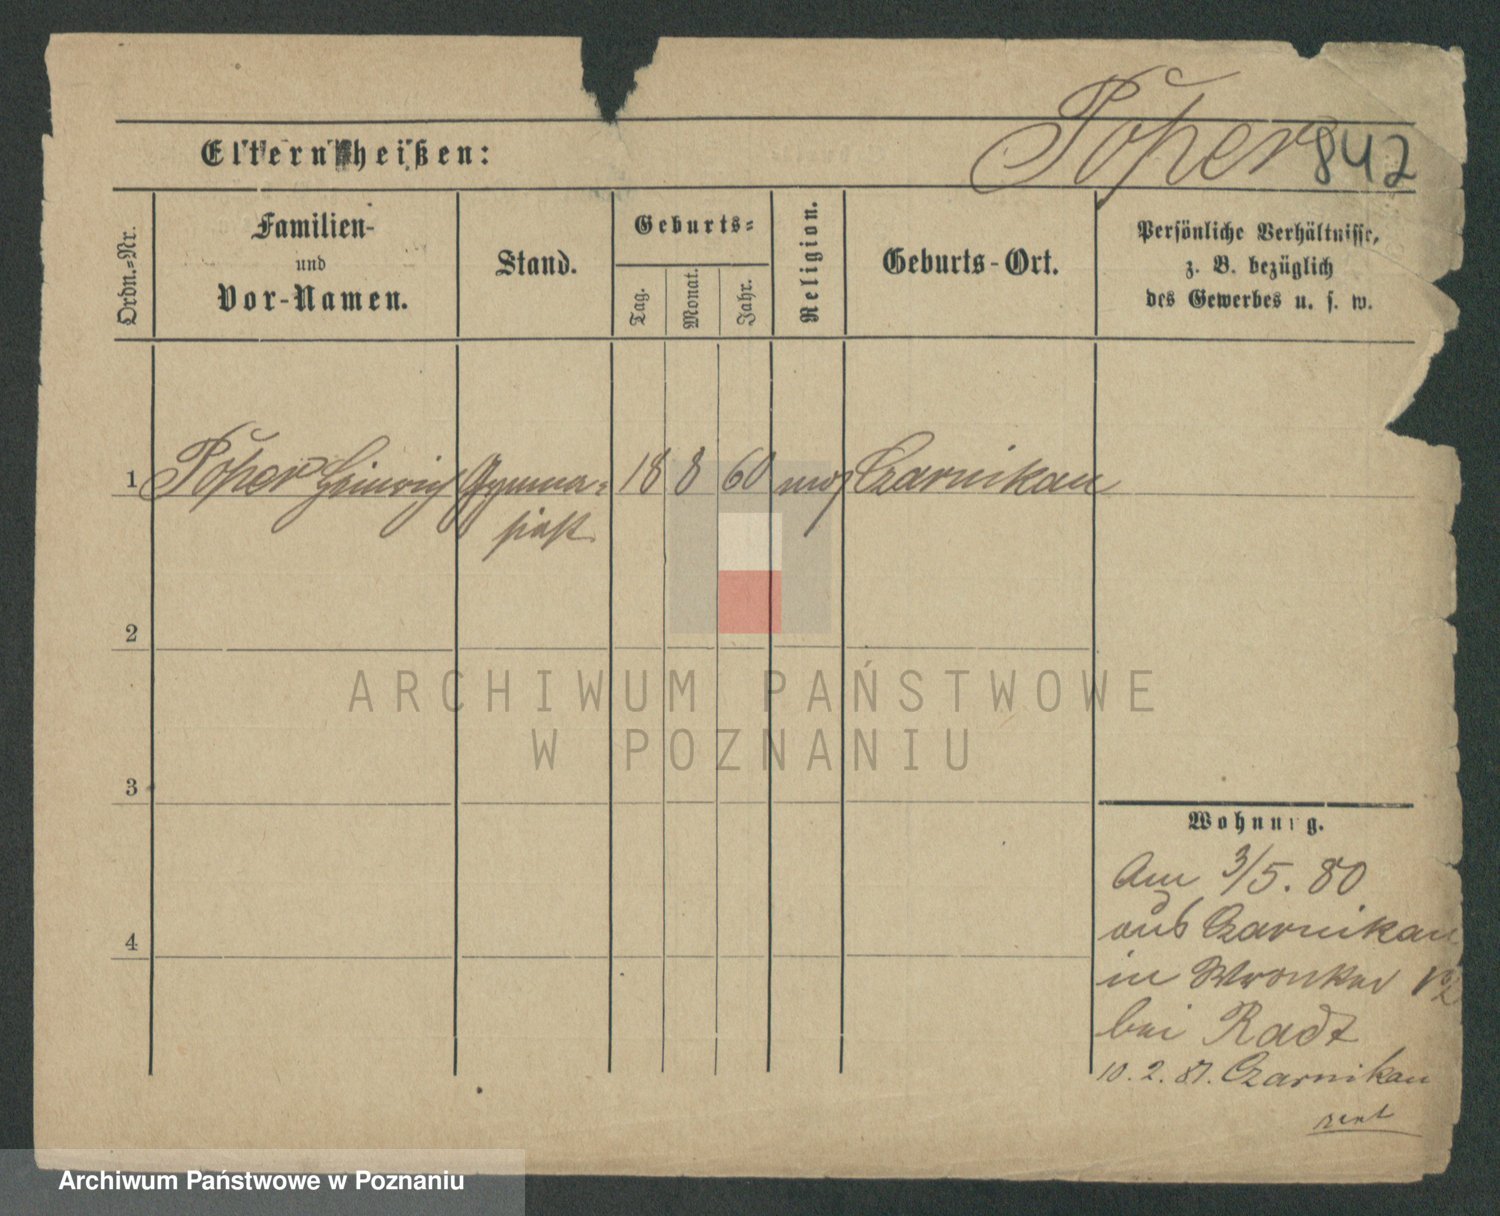 Eltern heißen:
Töper 842
Ordn.=Nr.
Familien-
und
Vor-Namen.
Stand.
Geburts=
Tag.
Monat.
Jahr.
Religion.
Geburts-Ort.
Persönliche Verhältnisse,
z. B. bezüglich
des Gewerbes u. s. w.
1 Töper Heinrich Gymna= 18 8 60 mos Czarnikau
siast
2
3
4
ARCHIWUM PAŃSTWOWE
W POZNANIU
Wohnung.
Am 3/5. 80
aus Czarnikau
in Wronker
bei Radt
10. 2. 81. Czarnikau
Archiwum Państwowe w Poznaniu